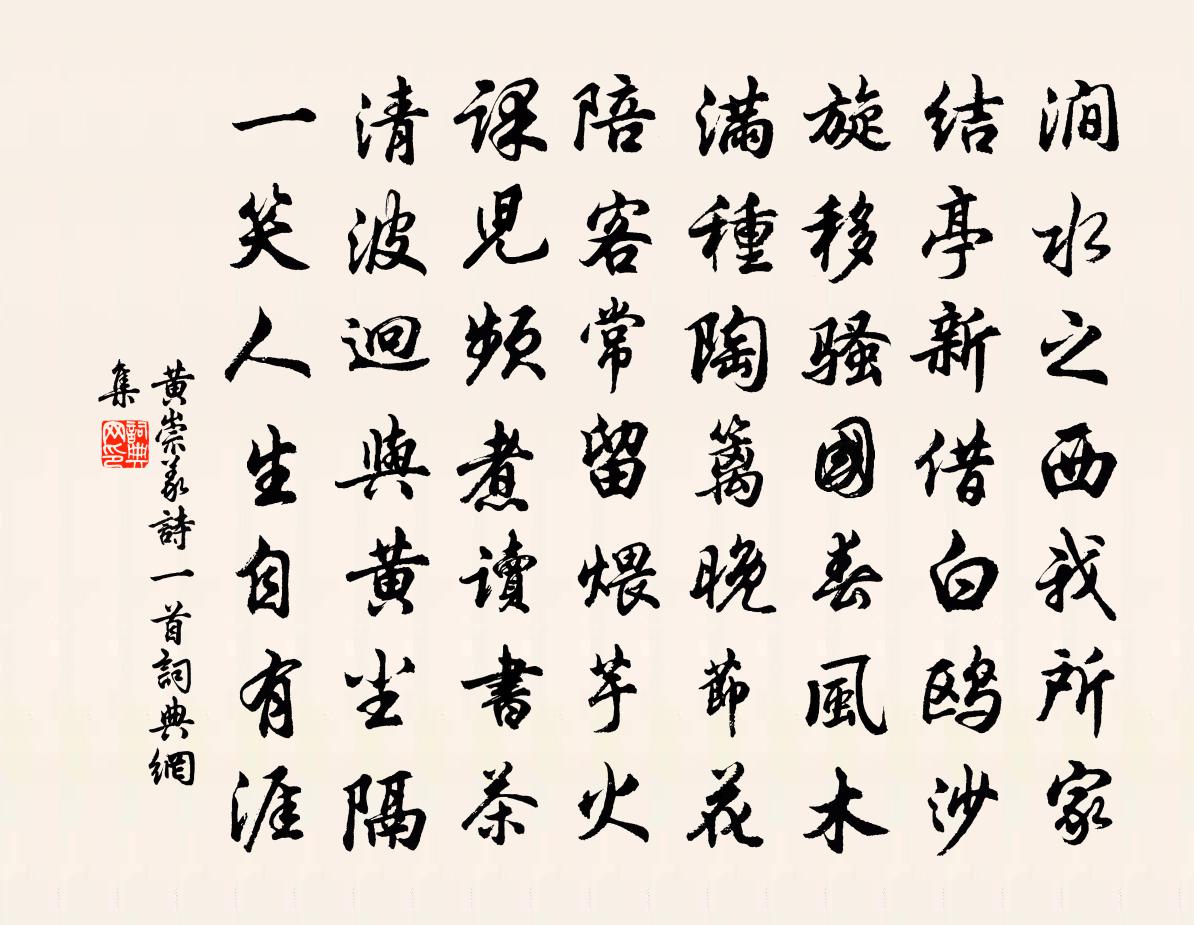 澗水之西我所家
結亭新借白鸥沙
旋移騷國春風木
滿種陶籬晚節花
陪客常留煨芋火
課児頻煮讀書茶
清波迥與黄尘隔
一笑人生自有涯
黄崇義詩一首詞典網
集
詞典
网印